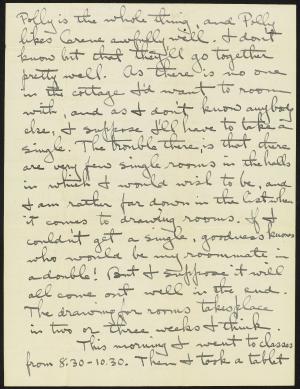 Polly is the whole thing, and Polly
likes Carene awfully well. I don't
know but that they'll go together
pretty well. As there is no one
in the cottage I'd want to room
with, and as I don't know anybody
else, I suppose I'll have to take a
single. The trouble there, is that there
are very few single rooms in the halls
in which I would wish to be, and
I am rather far down in the list when
it comes to drawing rooms. If I
couldn't get a single, goodness knows
who would be my roommate in
a double! But I suppose it will
all come out well in the end.
The drawing for rooms takes place
in two or three weeks I think.
This morning I went to classes
from 8:30-10:30. Then I took a tablet